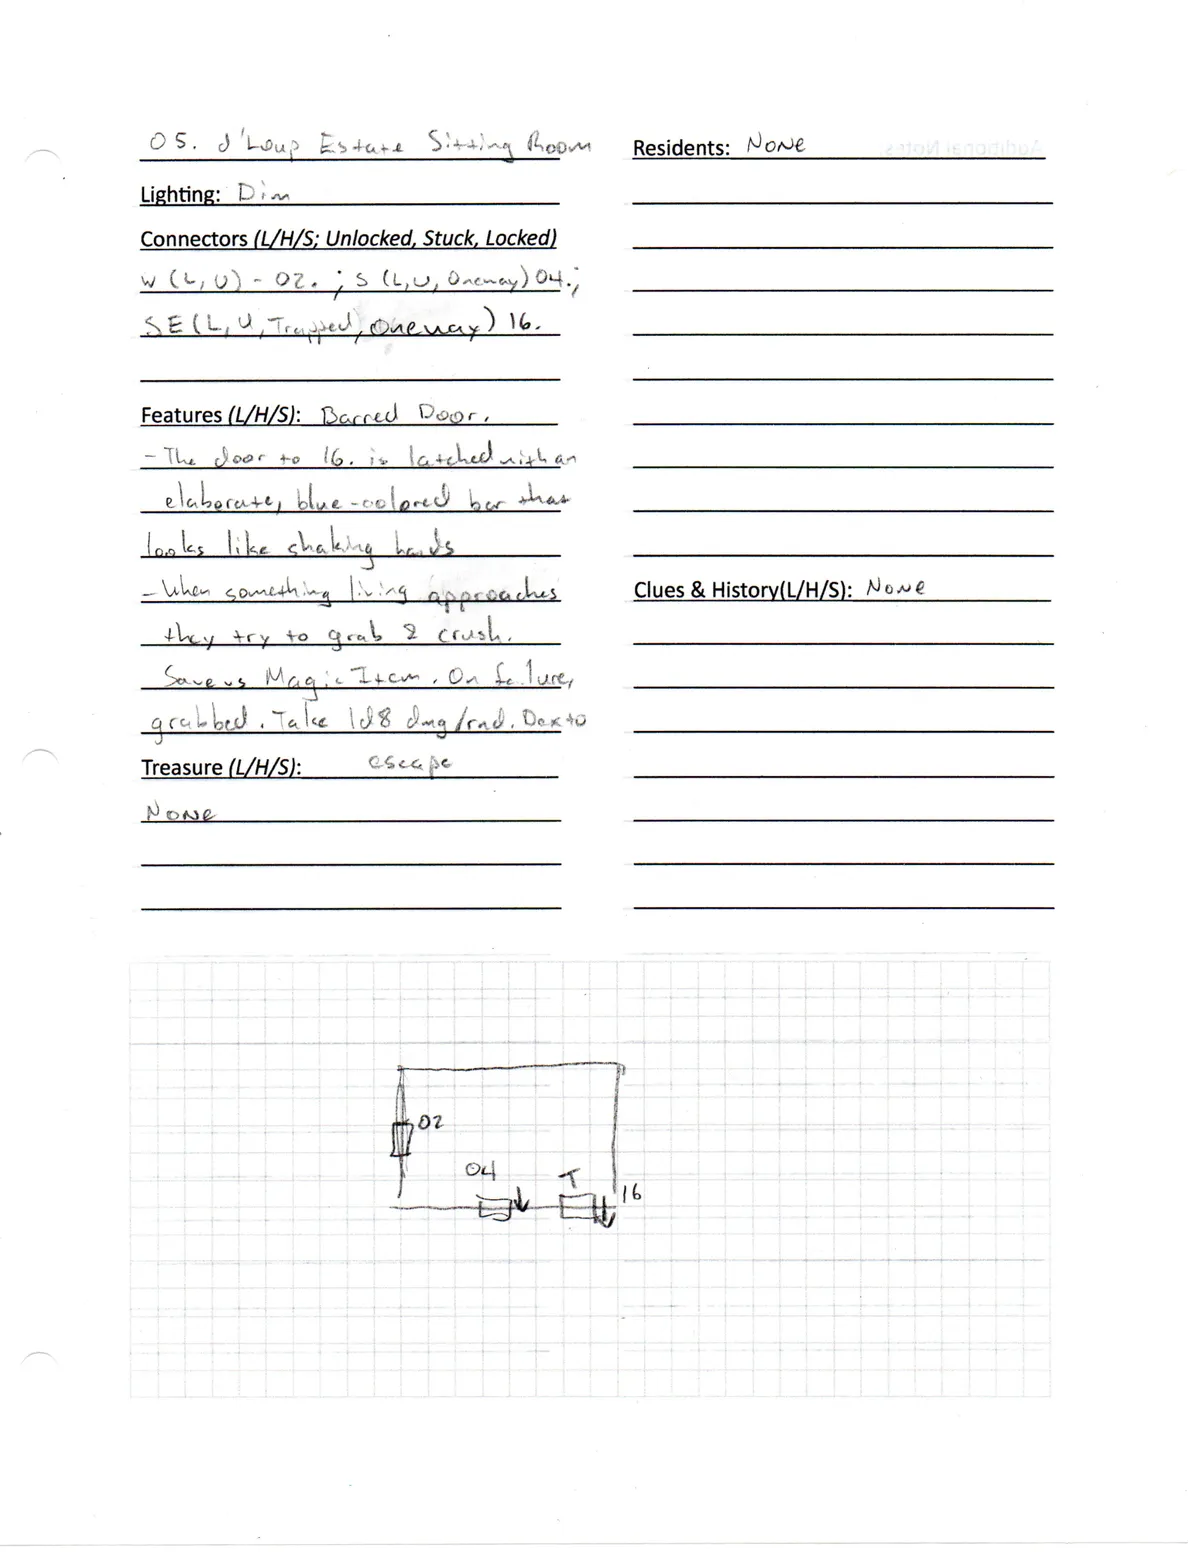 05. d'Loup Estate Sitting Room
Lighting: Dim
Connectors (L/H/S; Unlocked, Stuck, Locked)
W (L, U) - 02. ; S (L, U, Oneway) 04.;
SE (L, U, Trapped, Oneway) 16.
Features (L/H/S): Barred Door.
- The door to 16. is latched with an
elaborate, blue-colored bar that
looks like shaking hands
- When something living approaches
they try to grab & crush.
Save vs Magic Item. On failure,
grabbed. Take 1d8 dmg/rnd. Dex to
escape
Treasure (L/H/S):
None
Residents: None
Additional Notes
Clues & History(L/H/S): None
02
04
T
16